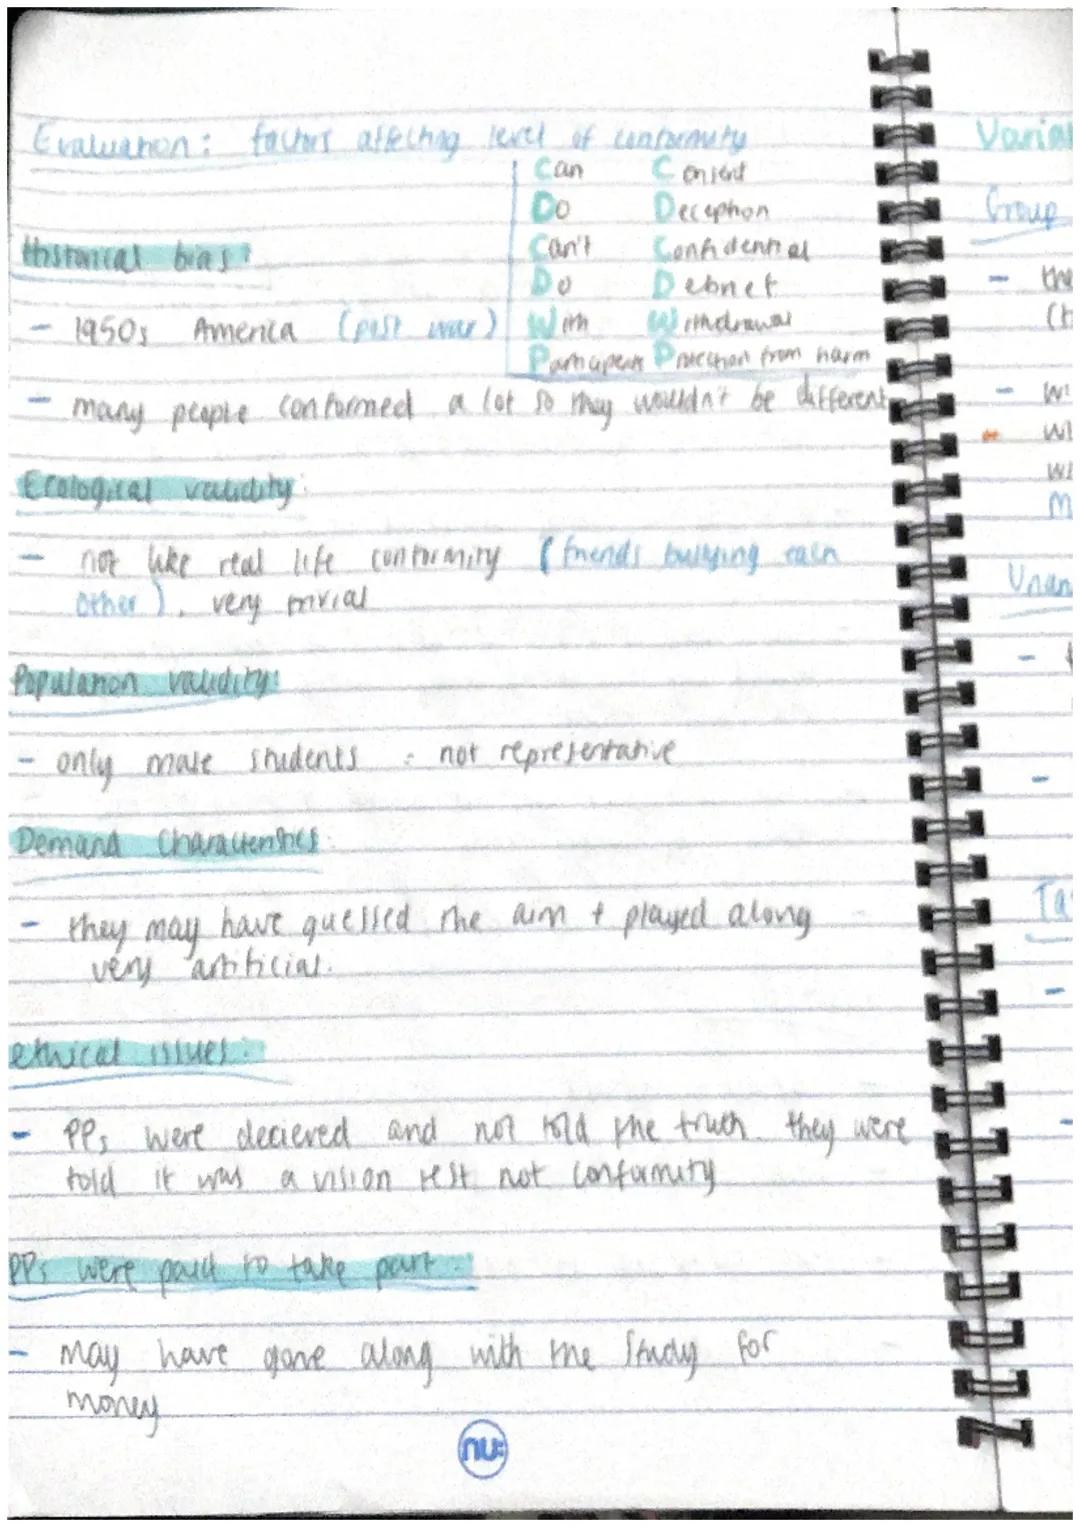 Evaluation: factors affecting level of conformity
Can Consent
Do Deception
Can't Confidential
Do Debrief
With Withdrawal
Participants Protection from harm
Historical bias:
- 1950s America (post war)
- many people conformed a lot so they wouldn't be different
Ecological validity:
- not like real life conformity (friends bullying each
other), very trivial
Population validity:
- only male students : not representative
Demand Characteristics:
- they may have guessed the aim + played along
very artificial.
ethical issues:
- PPs were decieved and not told the truth. they were
told it was a vision test not conformity
PPs were paid to take part:
- may have gone along with the study for
money
nu:
Varia
Group
- the
- wi
wi
Unan
Ta